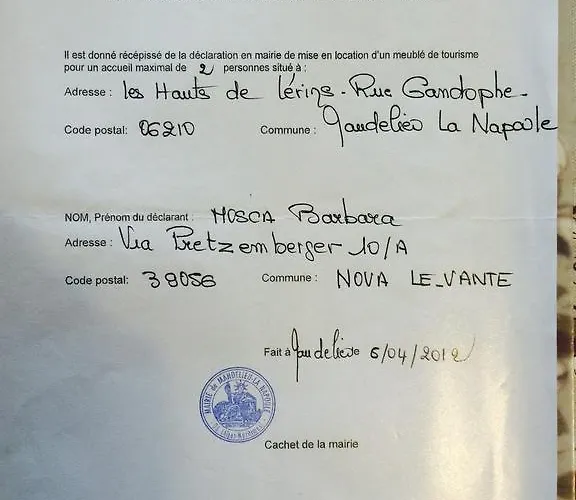 Il est donné récépissé de la déclaration en mairie de mise en location d'un meublé de tourisme
pour un accueil maximal de 2 personnes situé à :
Adresse : les Hauts de Lérins - Rue Gandophe -
Code postal: 06210 Commune : Mandelieu La Napoule
NOM, Prénom du déclarant : MOSCA Barbara
Adresse : Via Pretzemberger 10/A
Code postal: 39056 Commune : NOVA LEVANTE
Fait à Mandelieu le 5/04/2012
MAIRIE de MANDELIEU-LA NAPOULE
Cachet de la mairie